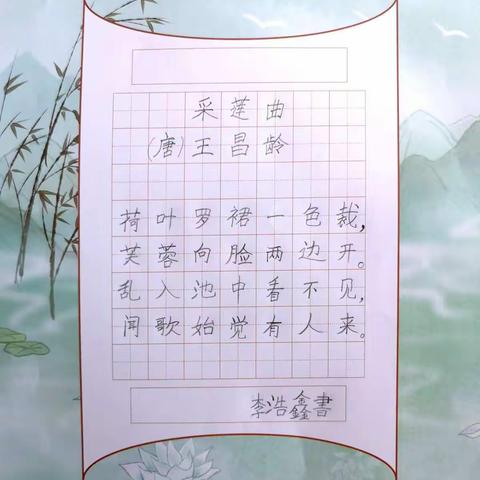 采莲曲
(唐)王昌龄
荷叶罗裙一色裁，
芙蓉向脸两边开。
乱入池中看不见，
闻歌始觉有人来。
李浩鑫書